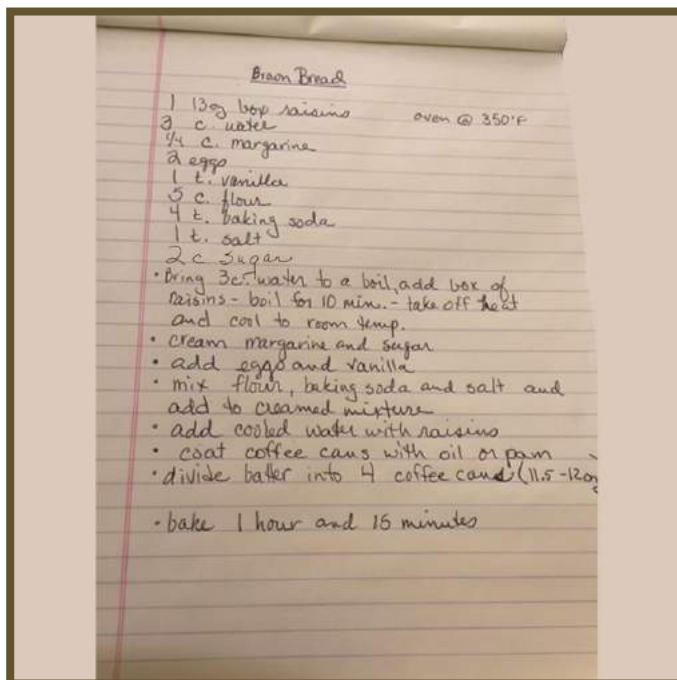 Braon Bread
1 13oz box raisins
oven @ 350°F
3 c. water
1/4 c. margarine
2 eggs
1 t. vanilla
5 c. flour
4 t. baking soda
1 t. salt
2 c sugar
• Bring 3c. water to a boil, add box of
raisins - boil for 10 min. - take off heat
and cool to room temp.
• cream margarine and sugar
• add eggs and vanilla
• mix flour, baking soda and salt and
add to creamed mixture
• add cooled water with raisins
• coat coffee cans with oil or pam
• divide batter into 4 coffee cans (11.5-12oz
• bake 1 hour and 15 minutes